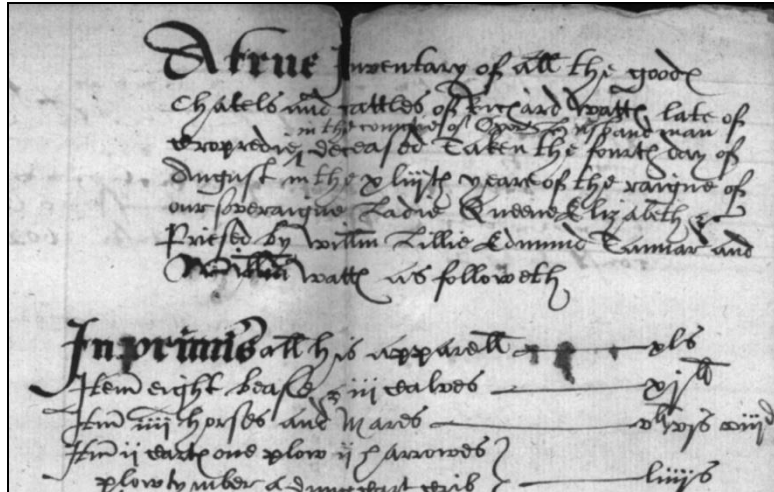 A true Inventary of all the goods
Chatels and cattles of Richard Watts late of
in the countie of Oxon husband man
Cropredie deceased Taken the fourth day of
August in the xliijth yeare of the raigne of
our soveraigne Ladie Queene Elizabeth &c
Priesed by Willm Lillie Edmund Tannar and
Willm Watts as followeth
Inprimis all his apparell xls
Itm eight beasts & iii calves xjll
Itm iiij horses and Mares
Itm ii carts one plow ij harrowes
plowtymber a dung cart crib liiijs